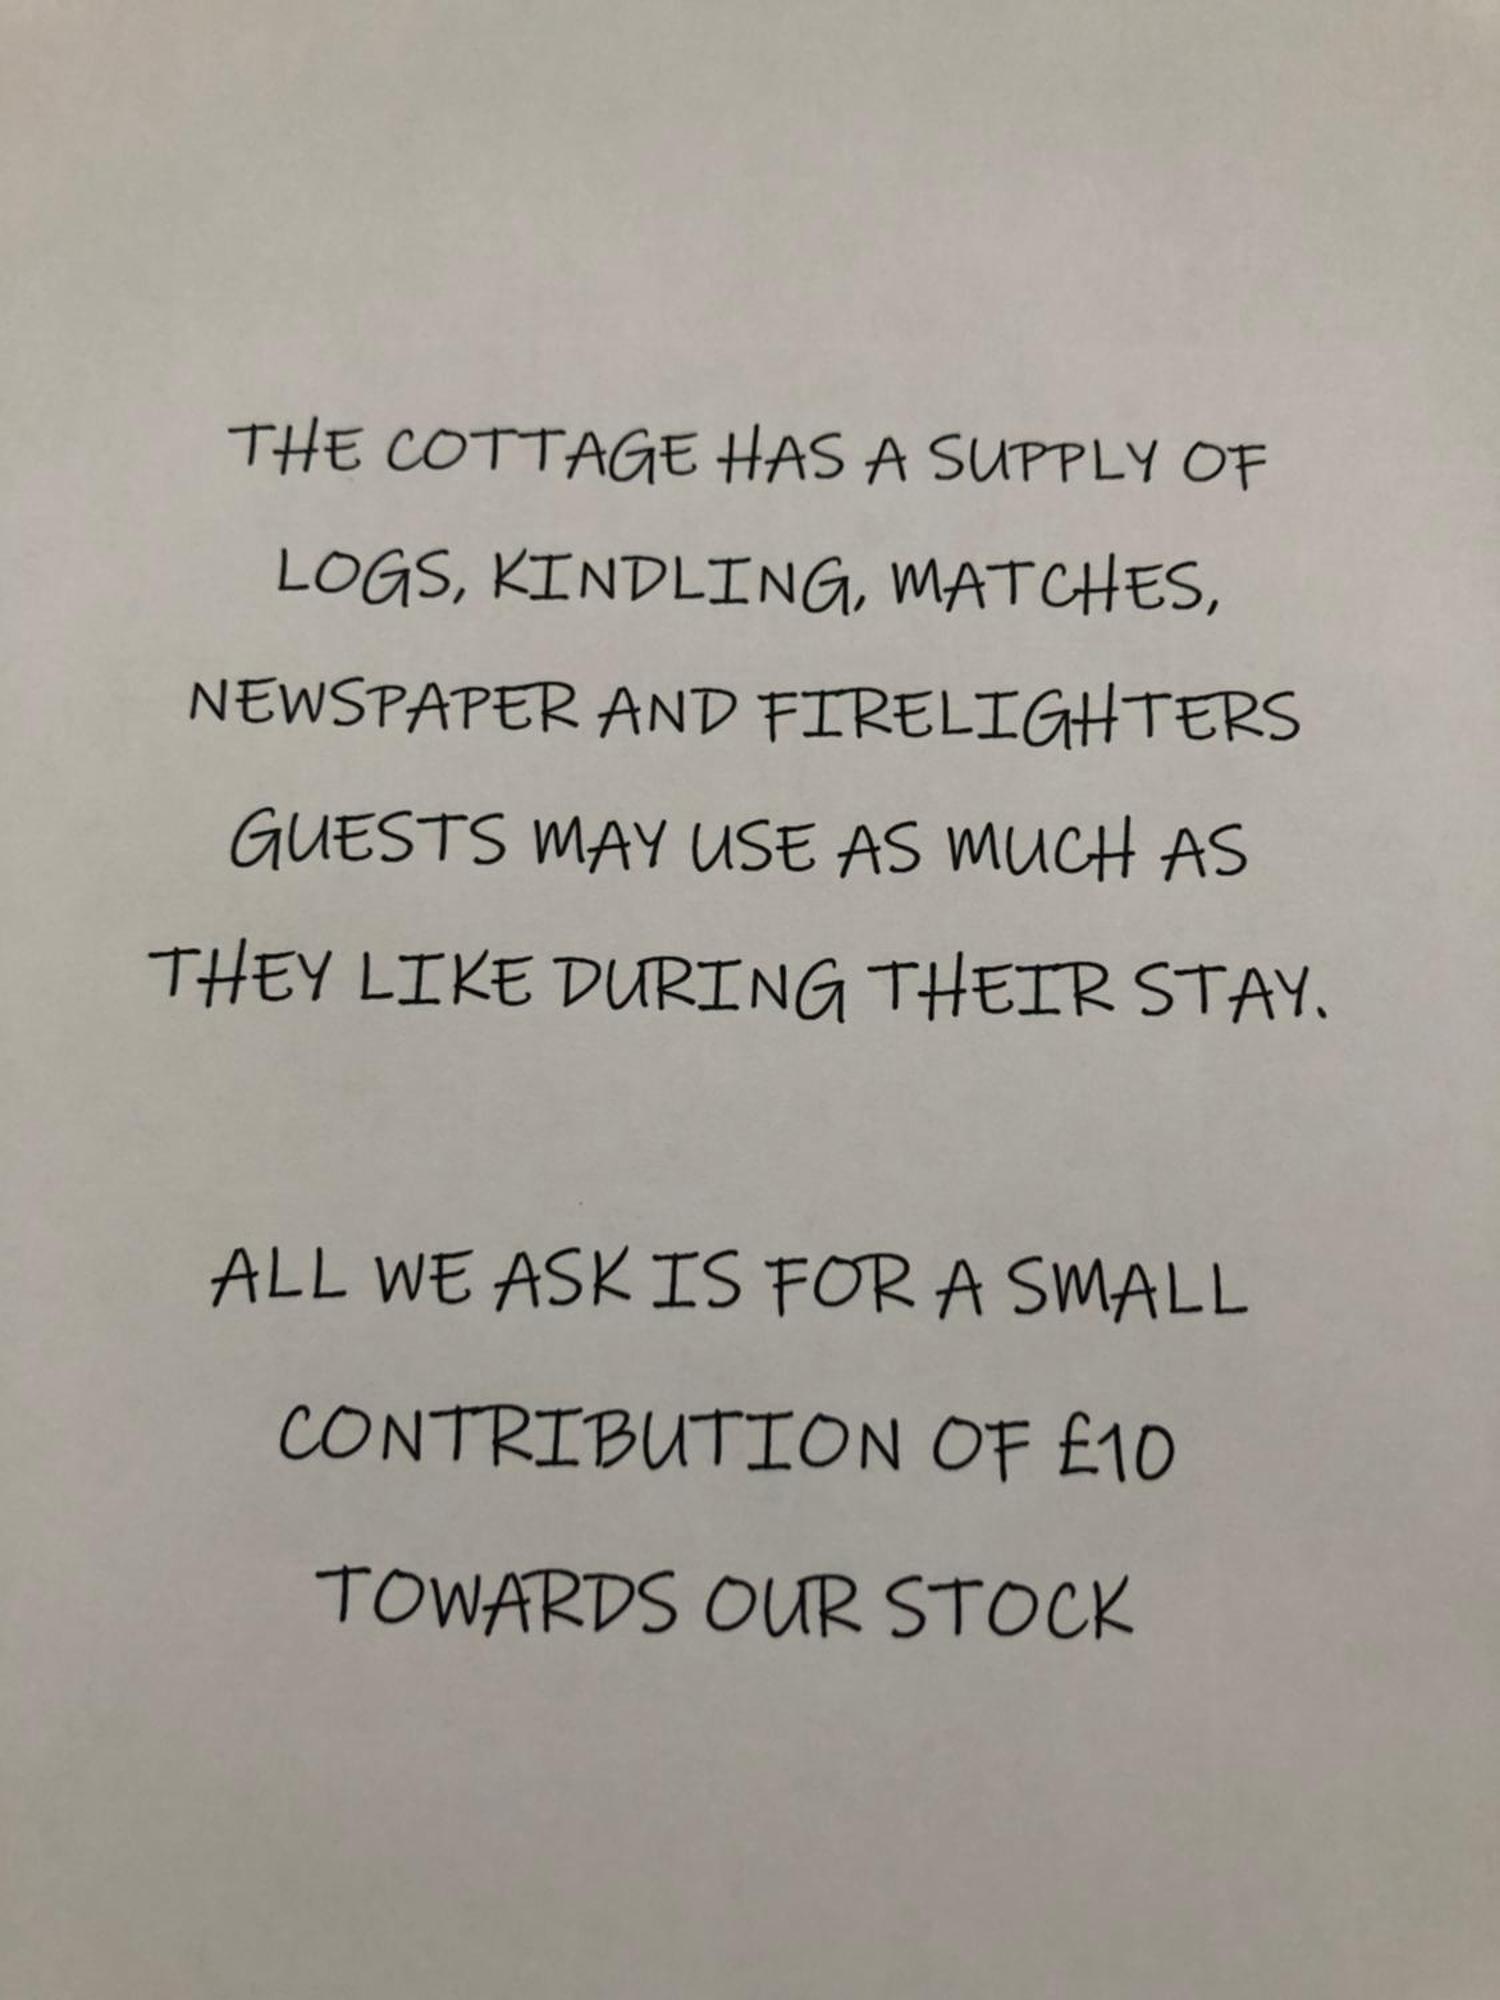 THE COTTAGE HAS A SUPPLY OF
LOGS, KINDLING, MATCHES,
NEWSPAPER AND FIRELIGHTERS
GUESTS MAY USE AS MUCH AS
THEY LIKE DURING THEIR STAY.
ALL WE ASK IS FOR A SMALL
CONTRIBUTION OF £10
TOWARDS OUR STOCK